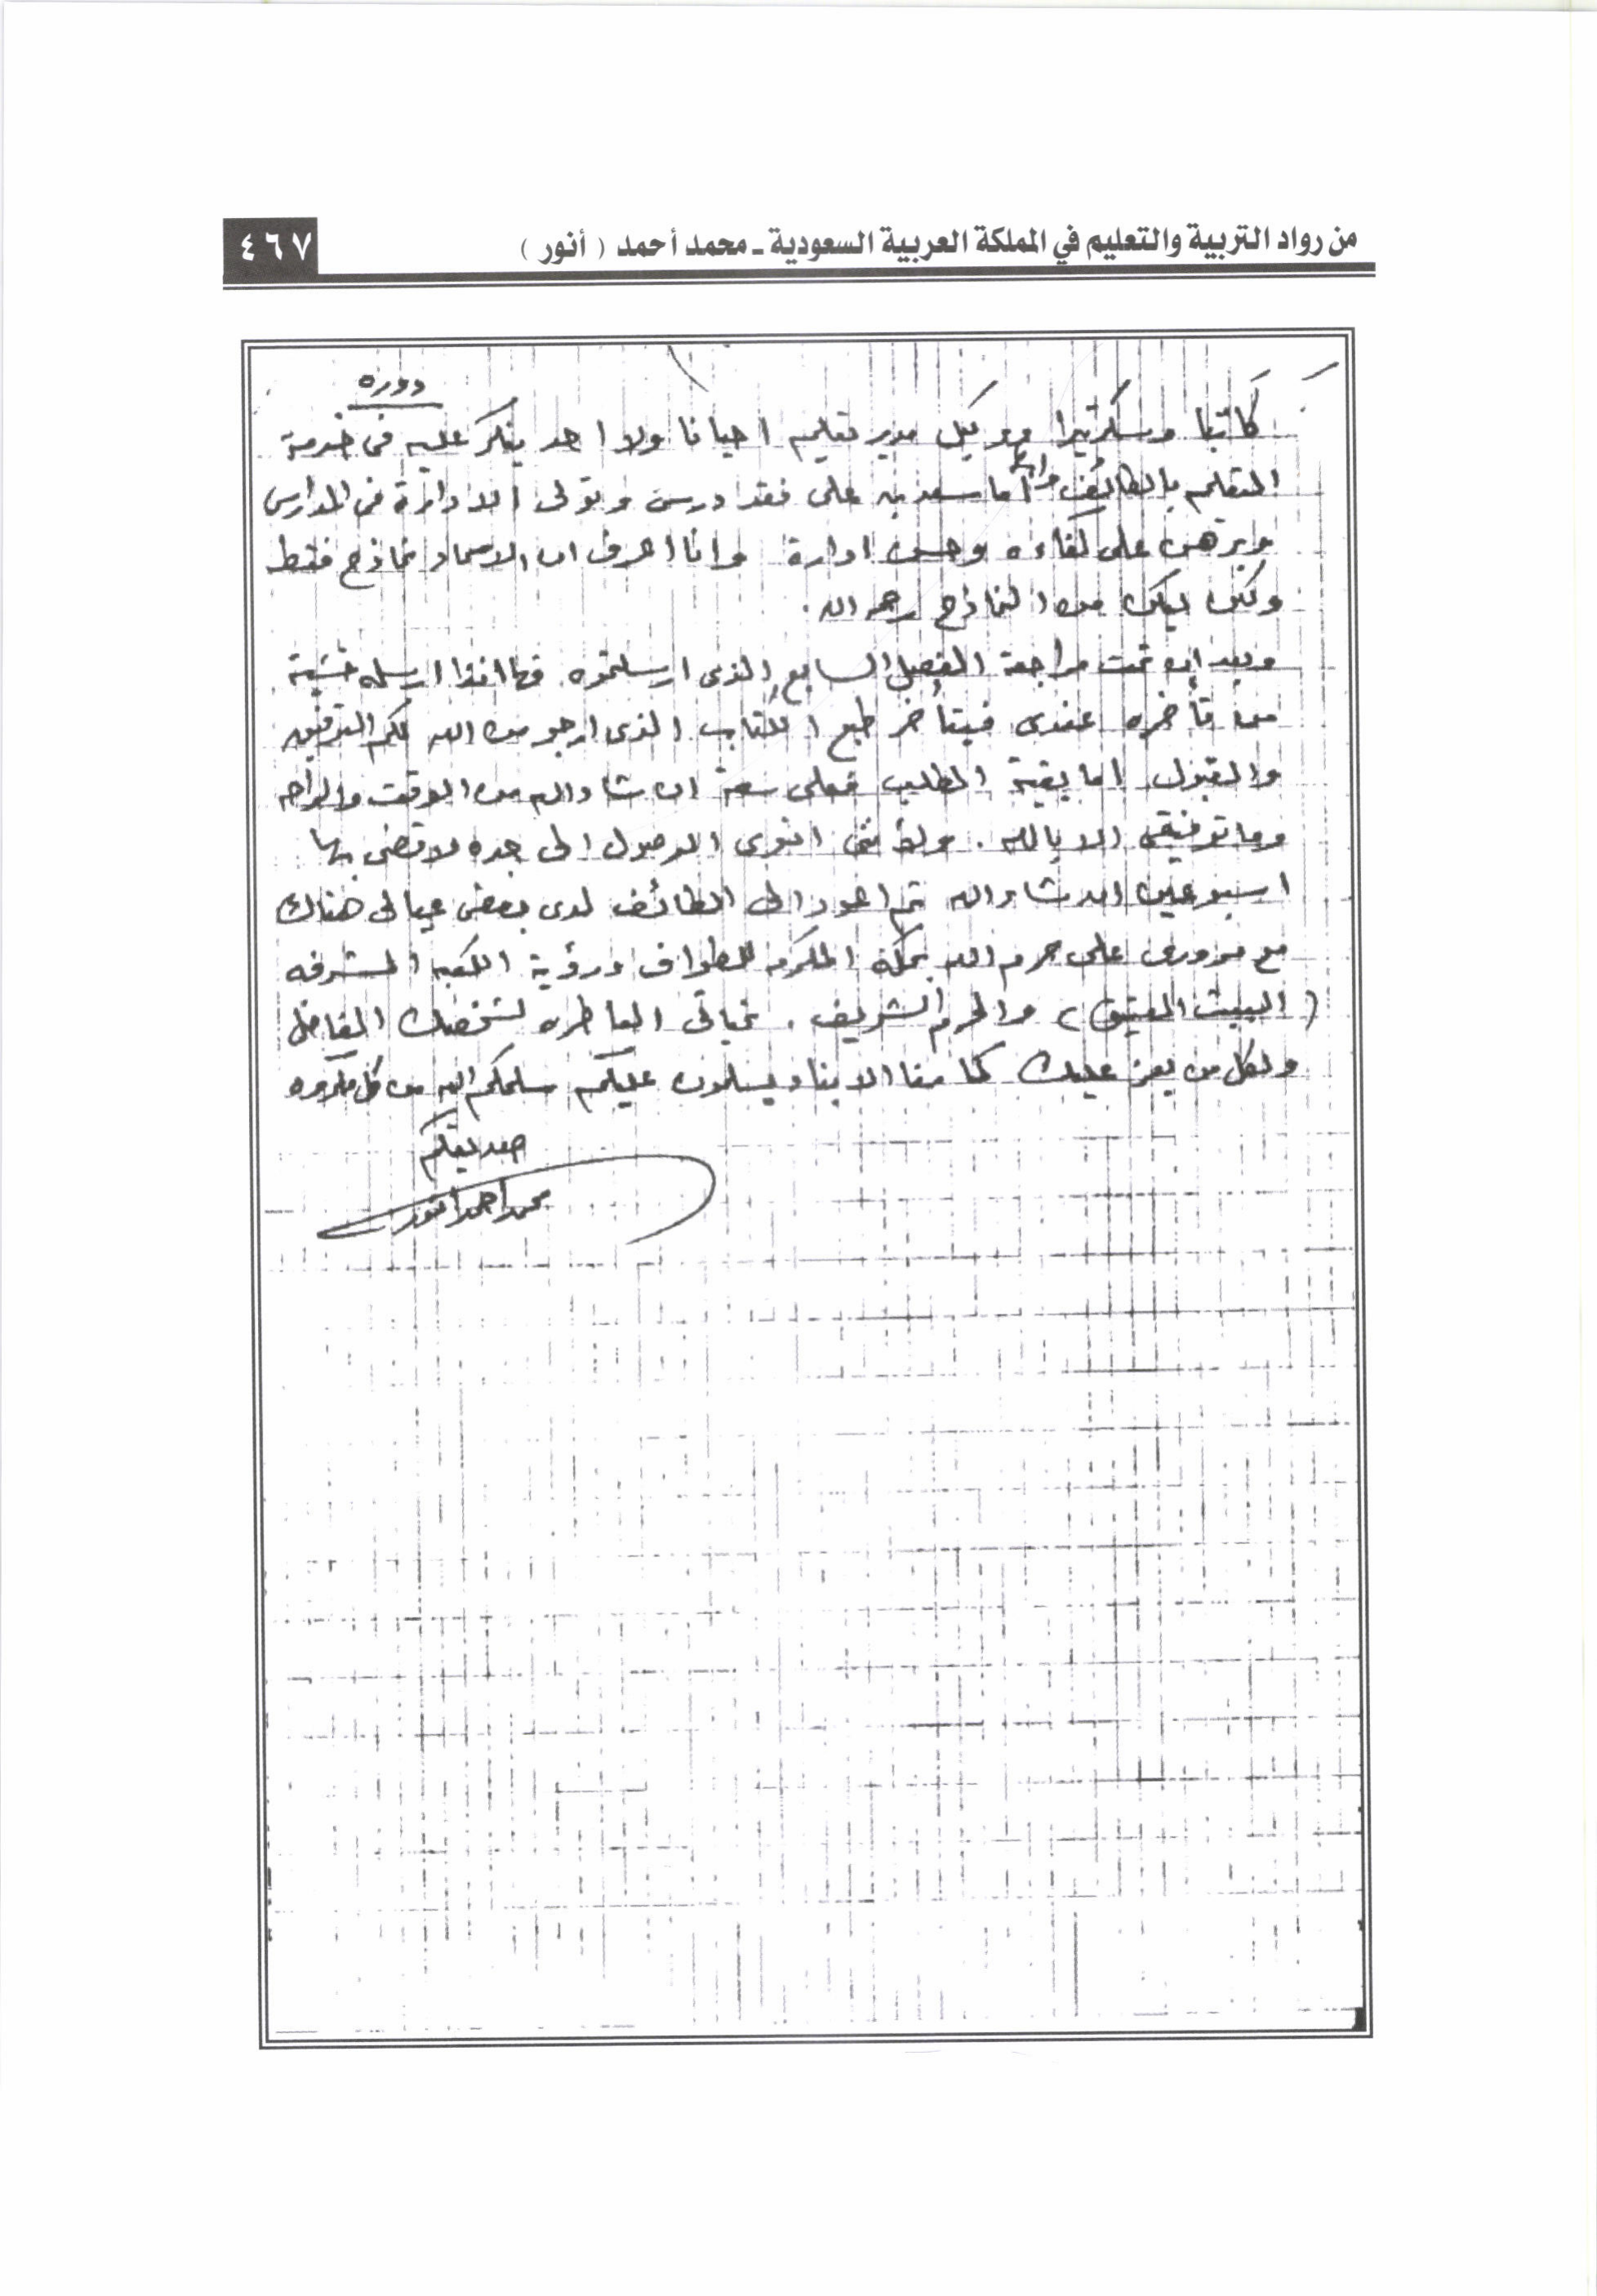 من رواد التربية والتعليم في المملكة العربية السعودية ـ محمد أحمد ( أنور )
٤٦٧
دوره
كاتبا وسكرتيرا ووكيل مدير تعليم احيانا ولا احد ينكر عليه فى خدمة
التعليم بالطائف اما سعد به على فقد درس وتولى الادارة فى المدارس
وبرهن على كفاءه وحسن ادارة وانا اعرف ان الاسماء نماذج فقط
ولكن ليكن من النماذج رحمه الله .
وبعد ان تمت مراجعة الفصل السابع الذى ارسلتموه فها انذا ارسله خشية
من تأخره عندى فيتأخر طبع الكتاب الذى ارجو من الله لكم التوفيق
والقبول اما بقية الطلب فعلى سعة ان شاء الله من الوقت والراحه
وما توفيقى الا بالله . ولأننى انوى الوصول الى جده لاقضى بها
اسبوعين ان شاء الله ثم اعود الى الطائف لدى بعض عيالى هناك
مع مرورى على حرم الله بمكة المكرمه للطواف ورؤية الكعبه المشرفه
( البيت العتيق ) والحرم الشريف . تحياتى العاطره لشخصك الفاضل
ولكل من يعز عليك كما منا الابناء يسلمون عليكم سلمكم الله من كل مكروه
صديقكم
محمد احمد انور